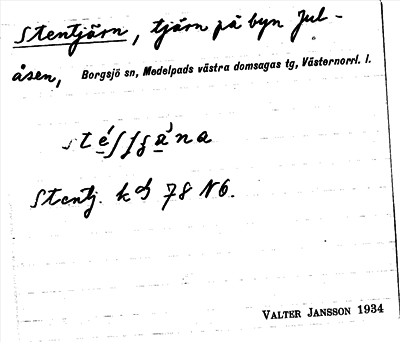 Stentjärn, tjärn på byn Jul-
åsen, Borgsjö sn, Medelpads västra domsagas tg, Västernorrl. l.
Stentj. kbl 78 N6.
VALTER JANSSON 1934